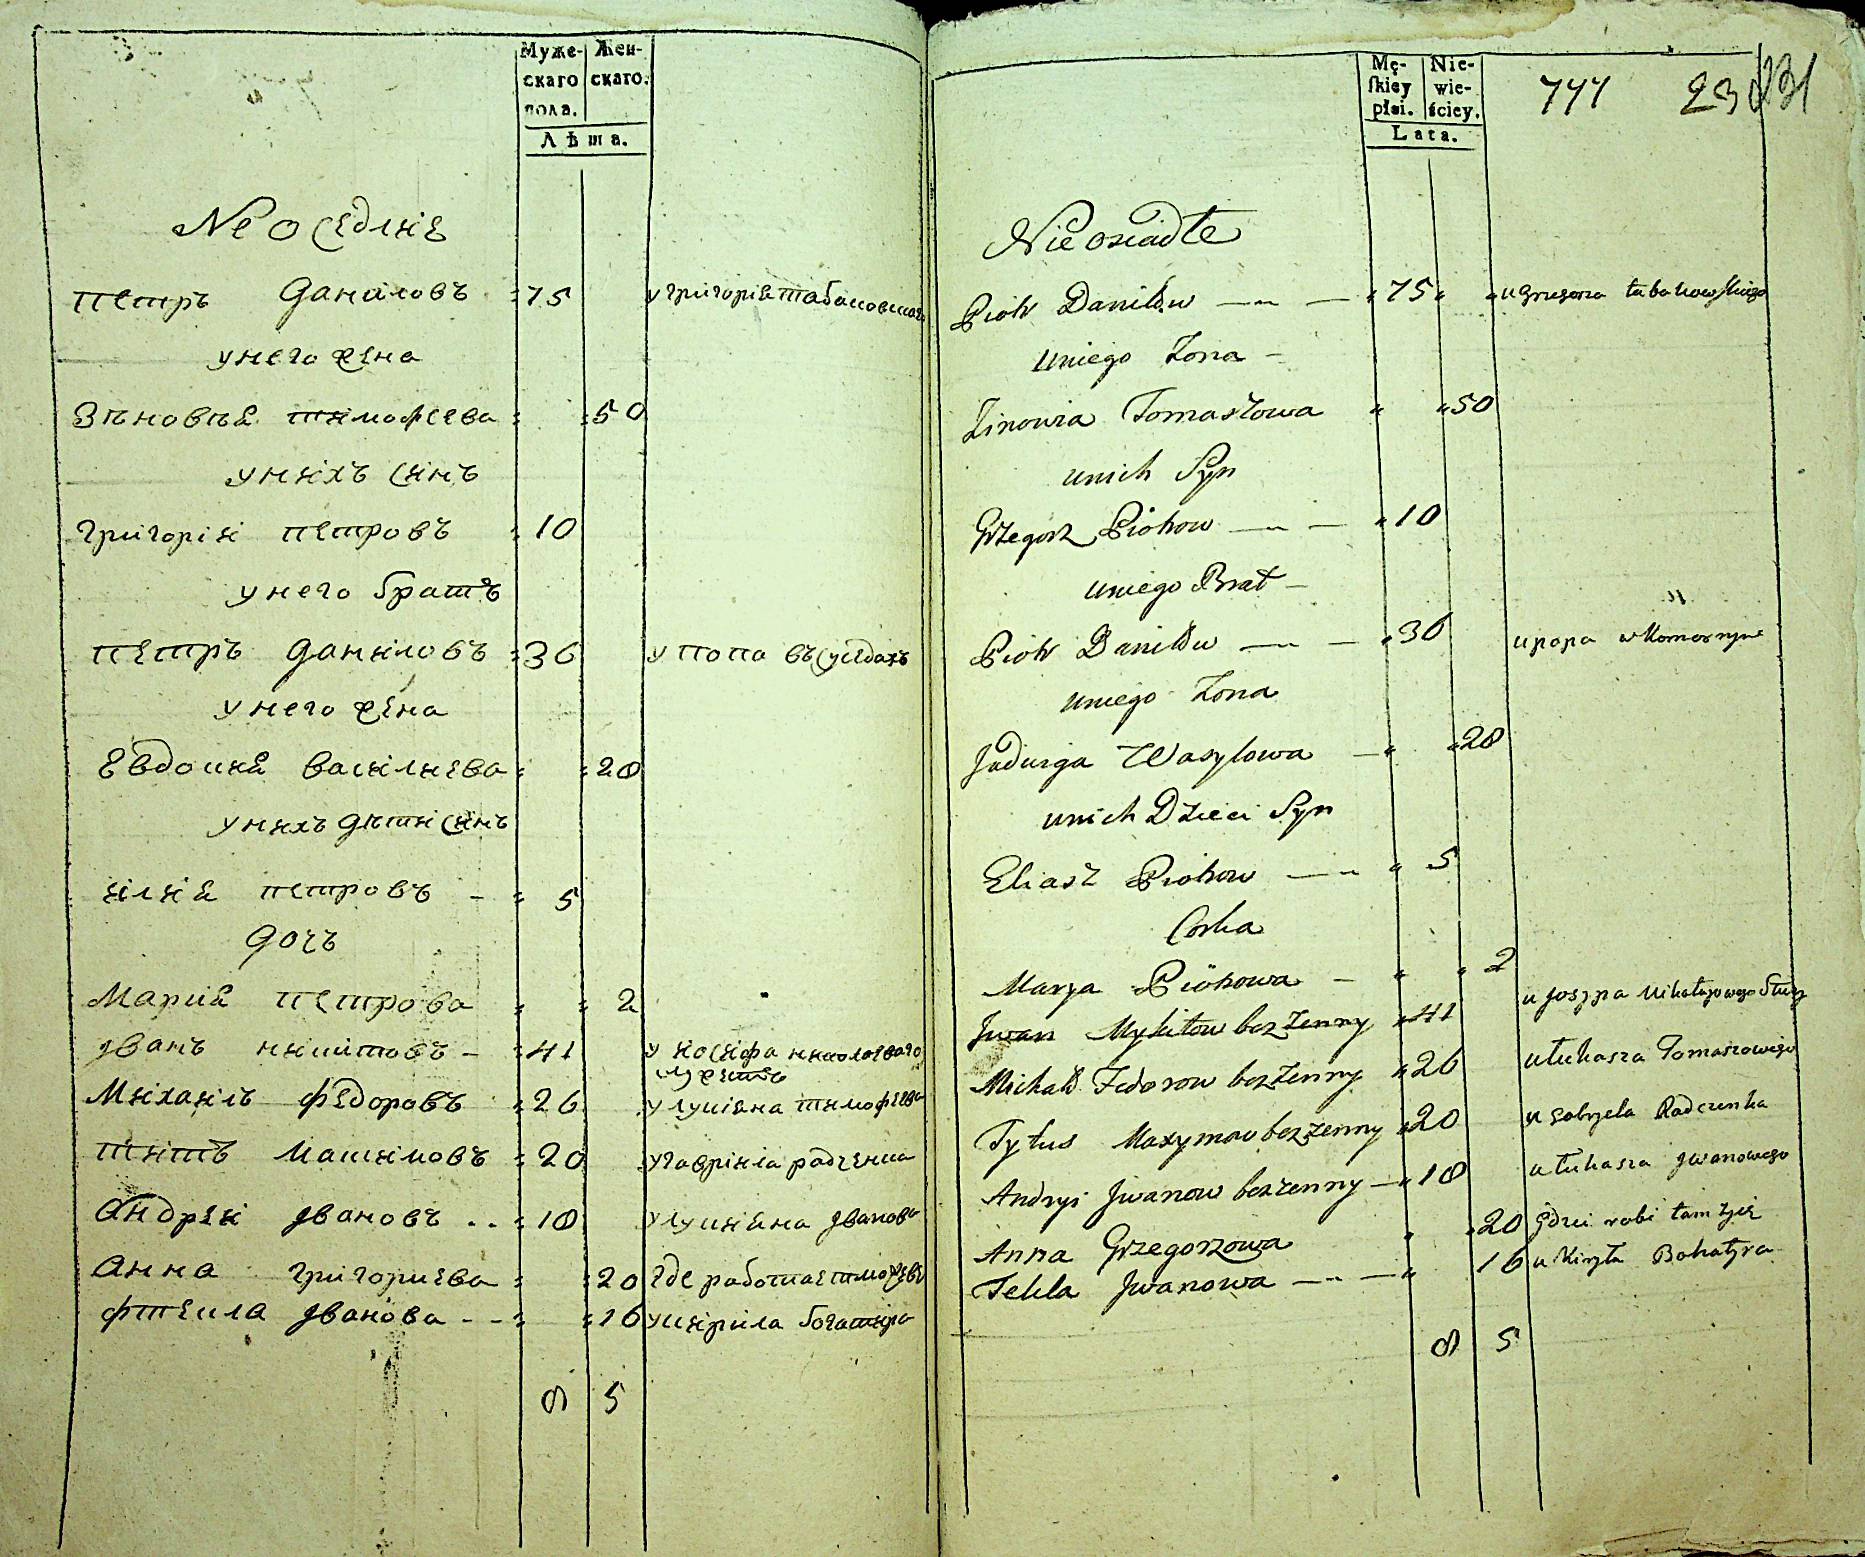 Муже- Жен-
скаго скаго.
пола.
Лѣта.
Неоседлие
Петръ Даниловъ 75 у Григорія Табаковскаго
у него жена
Зѣновѣя Тимофеева 50
у нихъ синъ
Григорій Петровъ 10
у него братъ
Петръ Даниловъ 36 у попа въ суседахъ
у него жена
Евдокия Васильева 28
у нихъ дѣти синъ
Илия Петровъ 5
дочъ
Мария Петрова 2
Иванъ Никитовъ 41 у Иосифа Николаеваго
служитъ
Михаилъ Федоровъ 26 у Лукіяна Тимофеева
Титъ Макимовъ 20 у Гаврила Радченка
Андрей Ивановъ 18 у Лукияна Иванова
Анна Григориева 20 где работает
Фтекла Иванова 16 у Кирила Богатира
8 5
Mę- Nie-
skiey wie-
płci. ściey.
Lata.
777 23 231
Nie osiadłe
Piotr Daniłów 75 u Grzegorza Tabakowskiego
u niego Żona
Zinowia Tomaszowa 50
u nich Syn
Grzegorz Piotrow 10
u niego Brat
Piotr Daniłów 36 u popa w Komornyne
u niego Żona
Jadwiga Wasylowa 28
u nich Dzieci Syn
Eliasz Piotrow 5
Corka
Marya Piotrowa 2
Jwan Mykitow bezżenny 41 u Joszpa Mikołajowego Służy
Michał Fedorow bezżenny 26 u Łukasza Tomaszowego
Tytus Maxymow bezżenny 20 u Gabryela Radczenka
Andryi Jwanow bezżenny 18 u Łukasza Jwanowego
Anna Grzegorzowa 20 gdzie robi tam żyie
Tekla Jwanowa 16 u Kiryła Bohatyra
8 5